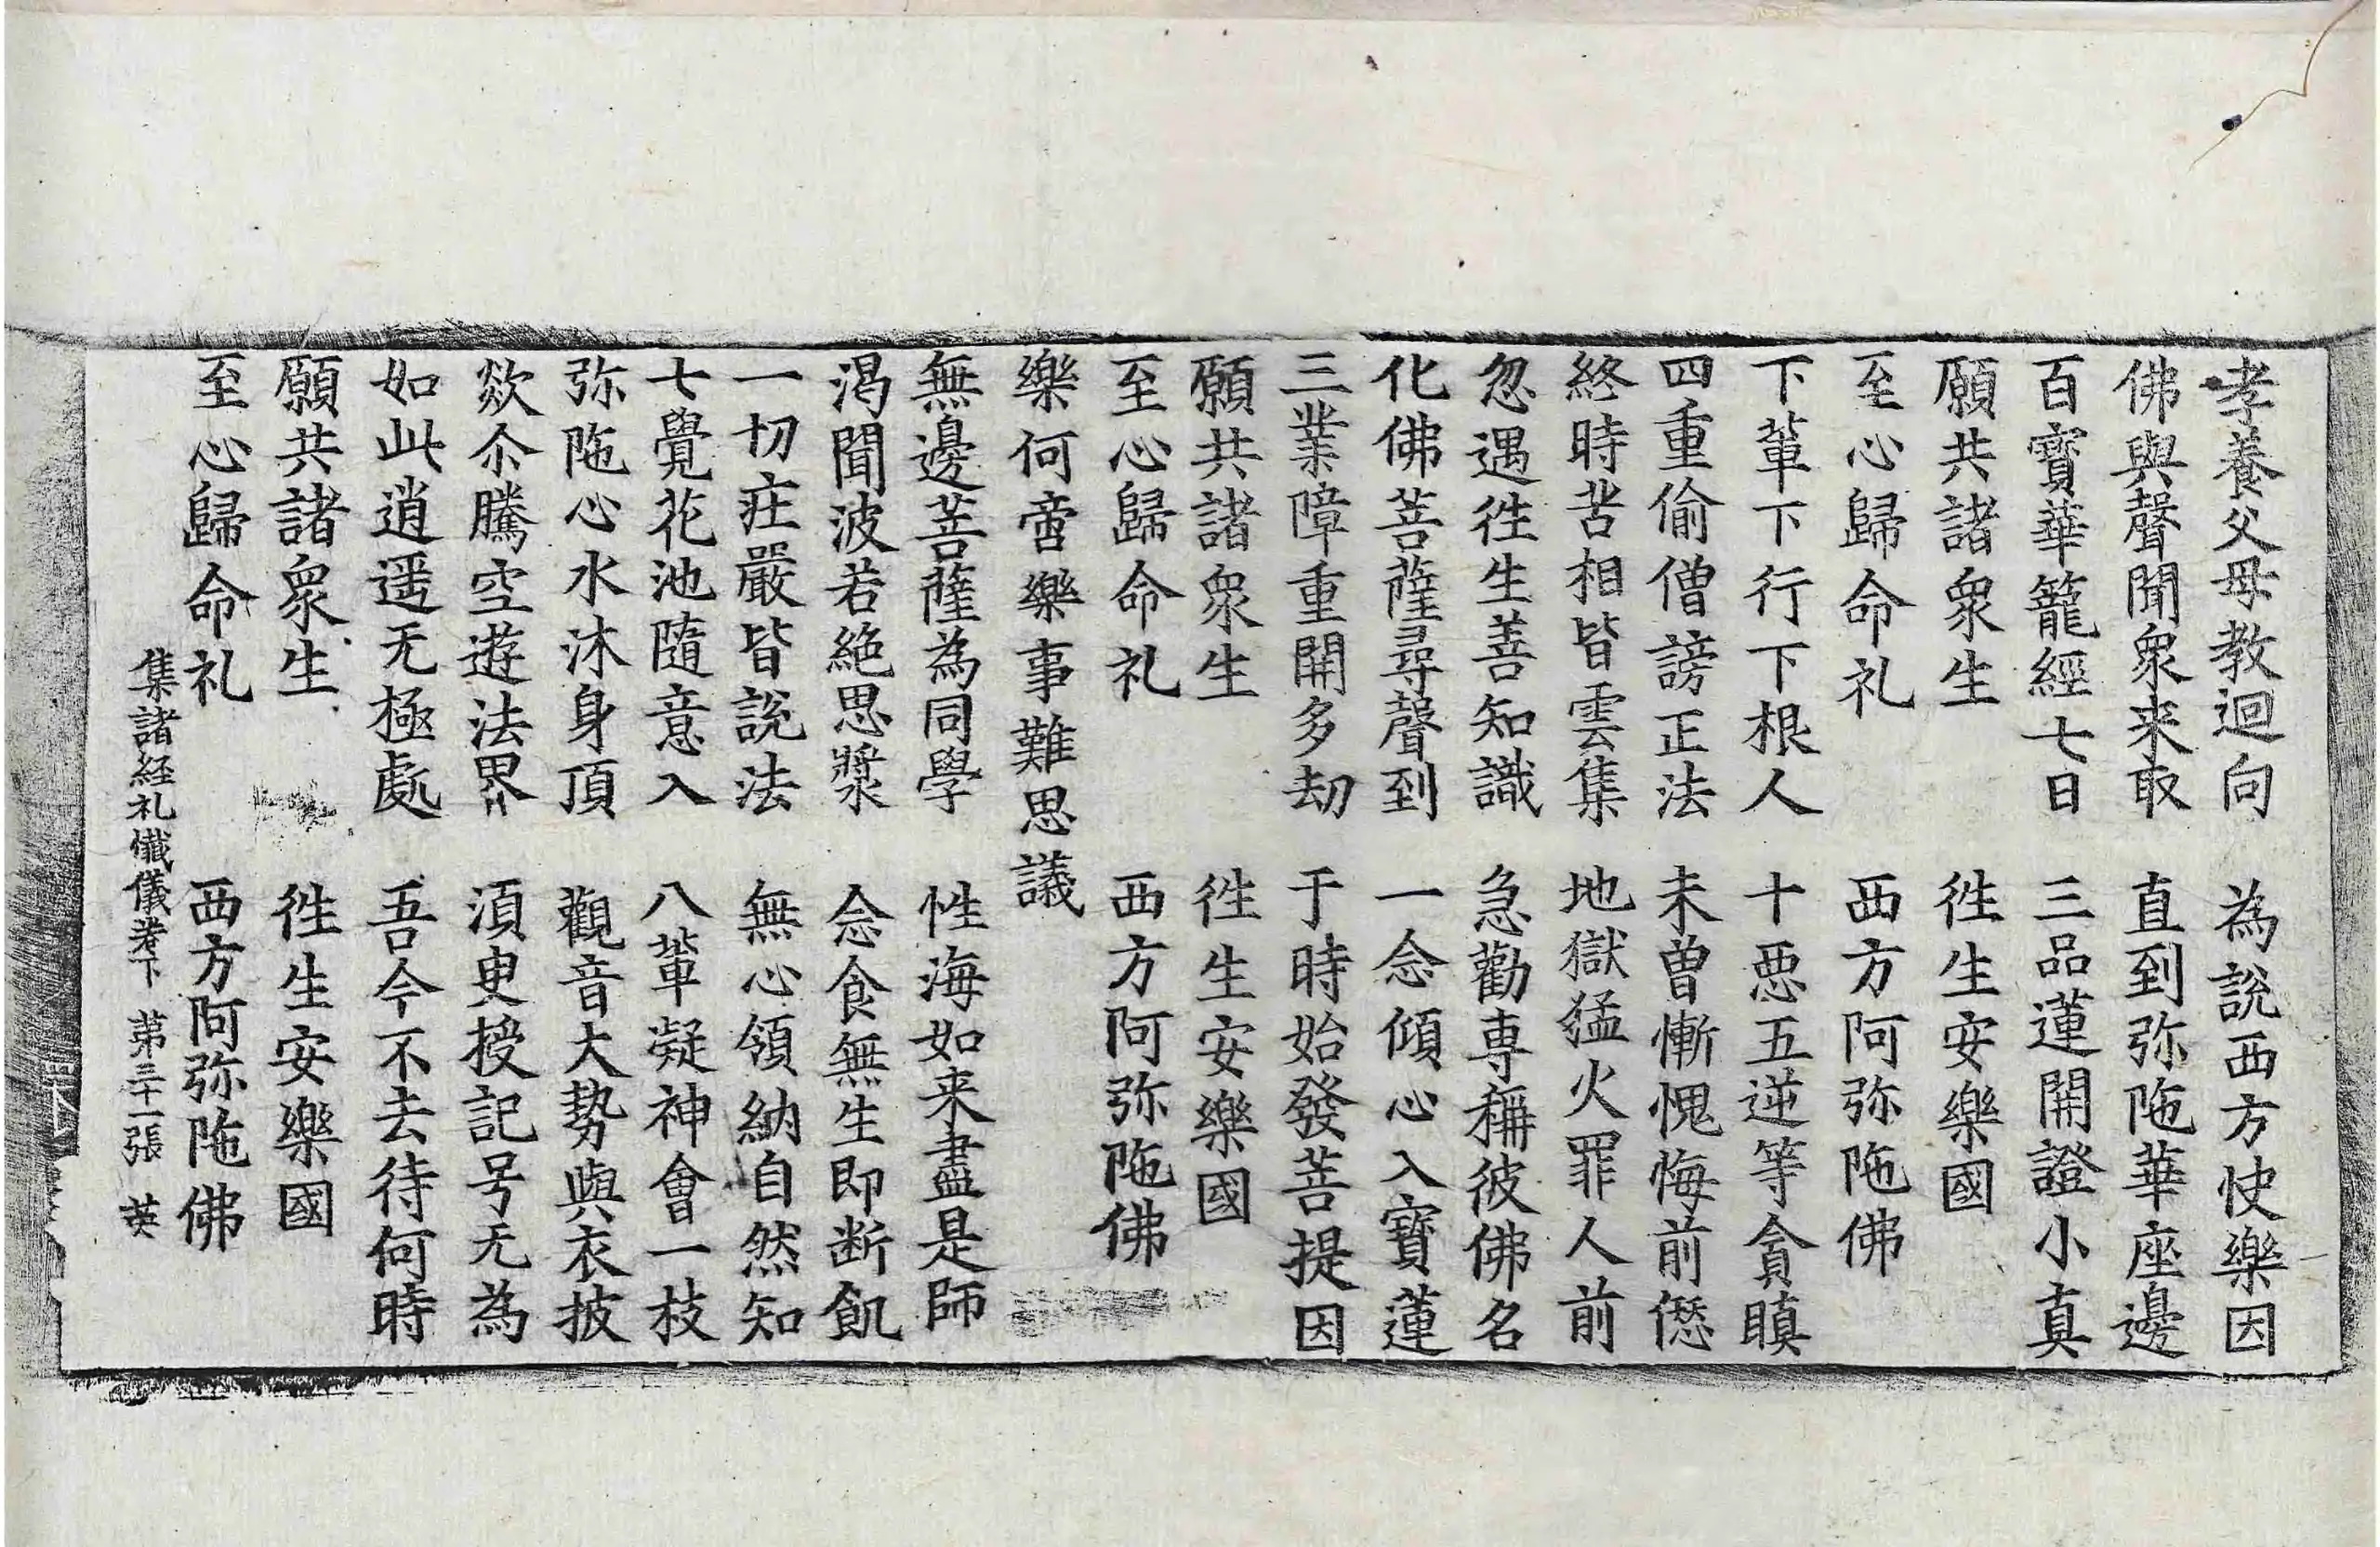 孝養父母教迴向　為說西方快樂因
佛與聲聞衆来取　直到弥陁華座邊
百寳華籠經七日　三品蓮開證小真
願共諸衆生　徃生安樂國
至心歸命礼　西方阿弥陁佛
下輩下行下根人　十惡五逆等貪瞋
四重偷僧謗正法　未曾慚愧悔前𠎝
終時苦相皆雲集　地獄猛火罪人前
忽遇徃生善知識　急勸專稱彼佛名
化佛菩薩尋聲到　一念傾心入寳蓮
三業障重開多劫　于時始發菩提因
願共諸衆生　徃生安樂國
至心歸命礼　西方阿弥陁佛
樂何啻樂事難思議
無邊菩薩為同學　性海如来盡是師
渴聞波若絶思漿　念食無生即断飢
一切庄嚴皆說法　無心領納自然知
七覺花池隨意入　八輩凝神會一枝
弥陁心水沐身頂　觀音大勢與衣披
歘尒騰空遊法界　湏臾授記号无為
如此逍遥无極處　吾今不去待何時
願共諸衆生　徃生安樂國
至心歸命礼　西方阿弥陁佛
集諸経礼懺儀卷下　第三十一張　英